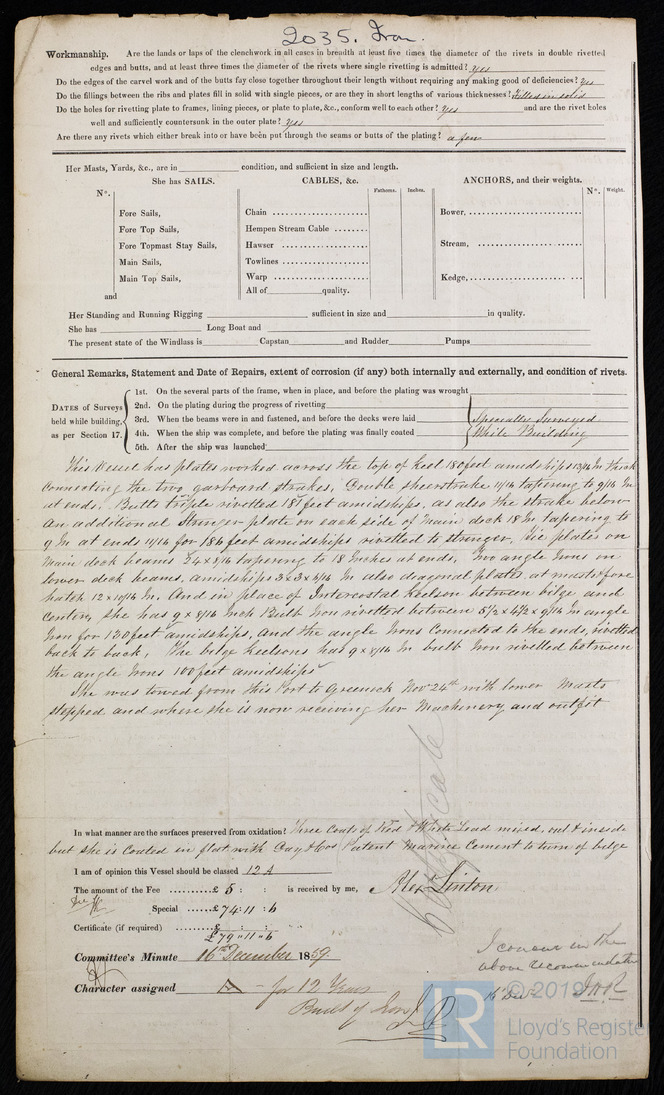 2035. Iron.
Workmanship. Are the lands or laps of the clenchwork in all cases in breadth at least five times the diameter of the rivets in double rivetted
edges and butts, and at least three times the diameter of the rivets where single rivetting is admitted? yes
Do the edges of the carvel work and of the butts fay close together throughout their length without requiring any making good of deficiencies? yes
Do the fillings between the ribs and plates fill in solid with single pieces, or are they in short lengths of various thicknesses? Filled in solid
Do the holes for rivetting plate to frames, lining pieces, or plate to plate, &c., conform well to each other? yes and are the rivet holes
well and sufficiently countersunk in the outer plate? yes
Are there any rivets which either break into or have been put through the seams or butts of the plating? a few
Her Masts, Yards, &c., are in condition, and sufficient in size and length.
She has SAILS. CABLES, &c. ANCHORS, and their weights.
N°. Fathoms. Inches. N°. Weight.
Fore Sails, Chain Bower,
Fore Top Sails, Hempen Stream Cable
Fore Topmast Stay Sails, Hawser Stream,
Main Sails, Towlines
Main Top Sails, Warp Kedge,
and All of quality.
Her Standing and Running Rigging sufficient in size and in quality.
She has Long Boat and
The present state of the Windlass is Capstan and Rudder Pumps
General Remarks, Statement and Date of Repairs, extent of corrosion (if any) both internally and externally, and condition of rivets.
DATES of Surveys held while building, as per Section 17.
1st. On the several parts of the frame, when in place, and before the plating was wrought
2nd. On the plating during the progress of rivetting
3rd. When the beams were in and fastened, and before the decks were laid Specially Surveyed
4th. When the ship was complete, and before the plating was finally coated While Building
5th. After the ship was launched
This Vessel has plates worked across the top of keel 180 feet amidships 13/16 In thick
Connecting the two garboard strakes, Double sheerstrake 11/16 tapering to 9/16 In
at ends, Butts triple rivetted 187 feet amidships, as also the strake below
An additional Stringer plate on each side of Main deck 18 In tapering to
9 In at ends 11/16 for 186 feet amidships rivetted to stringer, Tie plates on
Main deck beams 24 x 8/16 tapering to 18 Inches at ends, Two angle Irons on
lower deck beams, amidships 3 x 3 x 6/16 In also diagonal plates at masts & fore
hatch 12 x 10/16 In. And in place of Intercostal Keelson between bilge and
Center, she has 9 x 8/16 Inch Bulb Iron rivetted between 5 1/2 x 4 1/2 x 9/16 In angle
Iron for 130 feet amidships, and the angle Irons Connected to the ends, rivetted
back to back, The bilge keelsons has 9 x 8/16 In bulb Iron rivetted between
the angle Irons 100 feet amidships
She was towed from this Port to Greenock Nov 24th with lower Masts
stepped and where she is now receiving her Machinery and outfit
In what manner are the surfaces preserved from oxidation? Three Coats of Red & White Lead mixed, out & inside
but she is Coated in flat with Cay & Cos Patent Marine Cement to turn of bilge
I am of opinion this Vessel should be classed 12 A
The amount of the Fee £ 5 : : is received by me, Alex Linton
Special £74 : 11 : 6
Certificate (if required) £ : :
£79 " 11 " 6
Committee's Minute 16th December 1859.
Character assigned A - for 12 Years
Built of Iron
I concur in the
above recommendation
© 2019
LR Lloyd's Register
Foundation